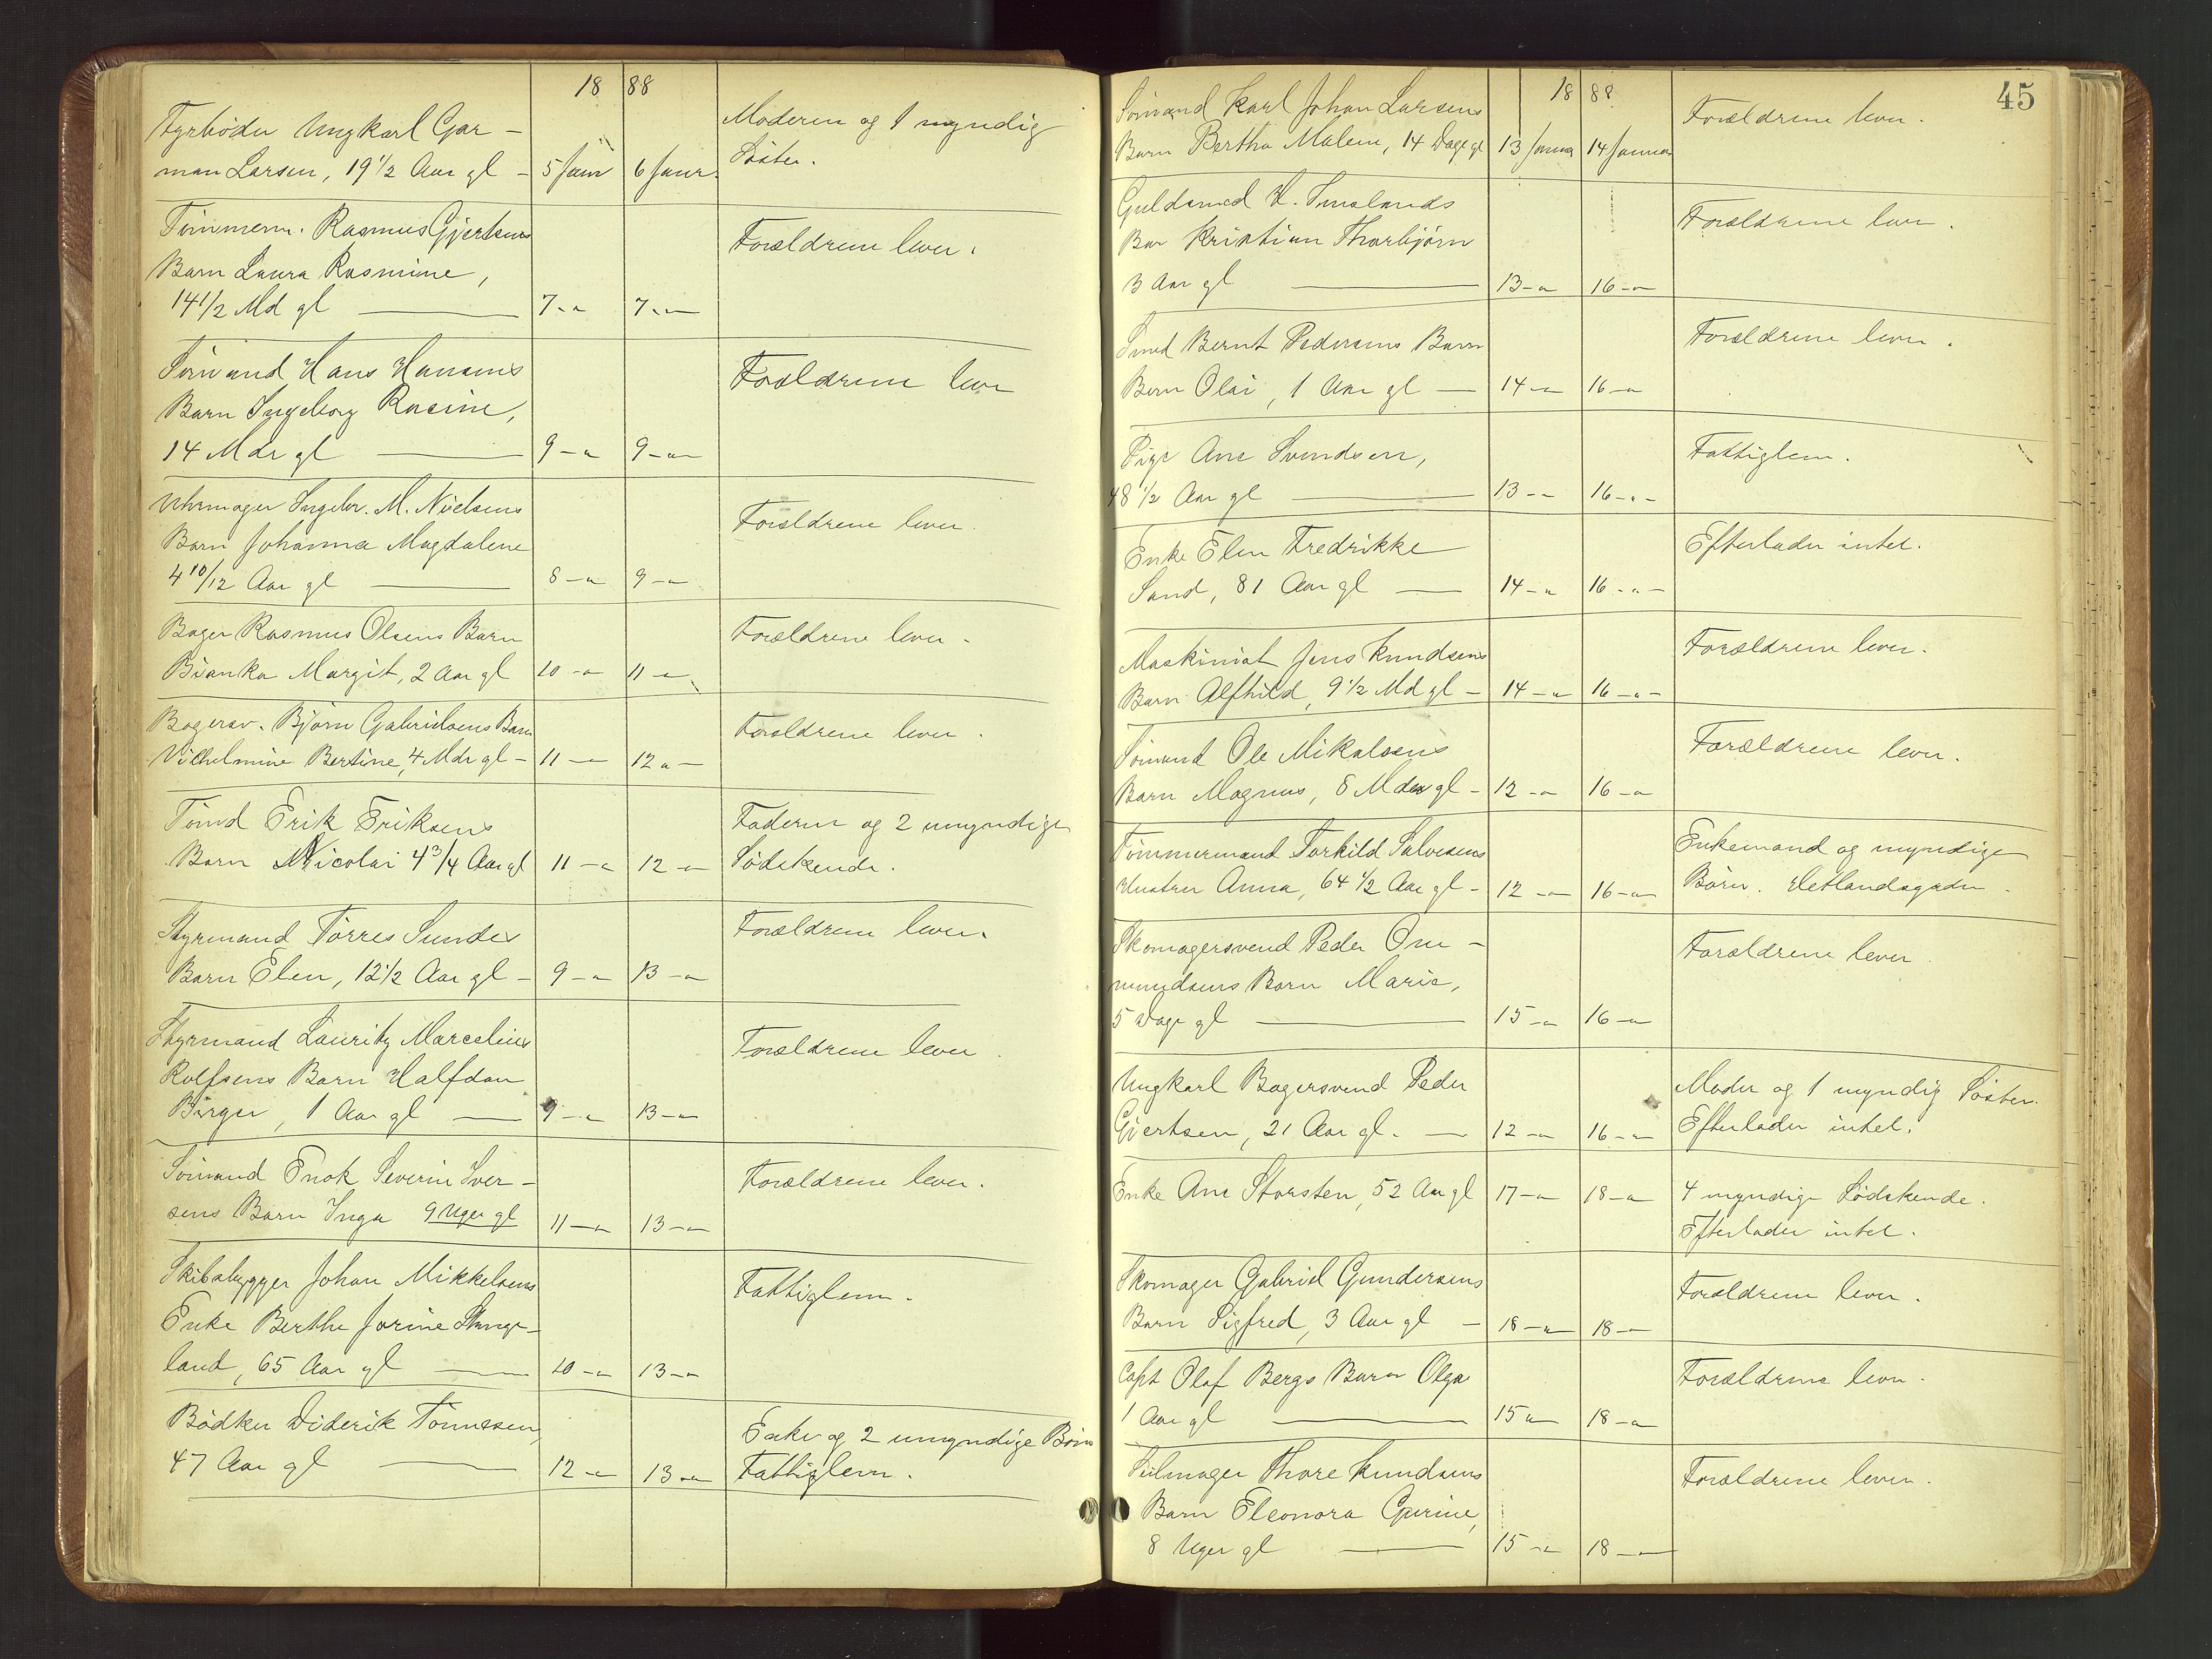 18 88
Fyrbøder Ungkarl Gar-
man Larsen, 19 1/2 Aar gl - 5 Januar 6 Januar Moderen og 1 myndig
Søster.
Tømmerm. Rasmus Gjertsens
Barn Laura Rasmine, Forældrene lever.
14 1/2 Md gl 7 -"- 7 -"-
Sømand Hans Hansens Forældrene lever
Barn Ingeborg Rasine,
14 Mdr gl 9 -"- 9 -"-
Uhrmager Ingebr. M. Nielsens
Barn Johanna Magdalene Forældrene lever.
4 10/12 Aar gl 8 -"- 9 -"-
Bager Rasmus Olsens Barn Forældrene lever.
Bianka Margit, 2 Aar gl 10 -"- 11 -"-
Bagersv. Bjørn Gabrielsens Barn Forældrene lever.
Vilhelmine Bertine, 4 Mdr gl - 11 -"- 12 -"-
Tømd Erik Eriksens Faderen og 2 umyndige
Barn Nicolai 4 3/4 Aar gl 11 -"- 12 -"- Sødskende.
Styrmand Tørres Sundes Forældrene lever.
Barn Elen, 12 1/2 Aar gl - 9 -"- 13 -"-
Styrmand Lauritz Marcelius
Rolfsens Barn Halfdan Forældrene lever.
Birger, 1 Aar gl 9 -"- 13 -"-
Sømand Enok Severin Iver- Forældrene lever.
sens Barn Inga 9 Uger gl 11 -"- 13 -"-
Skibsbygger Johan Mikkelsens Fattiglem.
Enke Berthe Jorine Stange-
land, 65 Aar gl 10 -"- 13 -"-
Bødker Diderik Tønnesen, Enke og 2 umyndige Børn
47 Aar gl 12 -"- 13 -"- Fattiglem.
18 88 45
Sømand Karl Johan Larsens Forældrene lever.
Barn Bertha Malene, 14 Dage gl 13 Januar 14 Januar
Guldsmed H. Smolands Forældrene lever.
Bar Kristian Thorbjørn
3 Aar gl 13 -"- 16 -"-
Smed Bernt Pedersens Barn Forældrene lever.
Bern Olai, 1 Aar gl - 14 -"- 16 -"-
Pige Ane Svendsen, Fattiglem.
48 1/2 Aar gl 13 -"- 16 -"-
Enke Elen Fredrikke Efterlader intet.
Sand, 81 Aar gl 14 -"- 16 -"-
Maskinist Jens Knudsens Forældrene lever.
Barn Alfhild, 9 1/2 Md gl - 14 -"- 16 -"-
Sømand Ole Mikalsens Forældrene lever.
Barn Magnus, 8 Mdr gl - 12 -"- 16 -"-
Tømmermand Torkild Salvesens Enkemand og myndige
Hustru Anna, 64 1/2 Aar gl - 12 -"- 16 -"- Børn. Hetlandsgaden.
Skomagersvend Peder Om- Forældrene lever
mundsens Barn Marie,
5 Dage gl 15 -"- 16 -"-
Ungkarl Bagersvend Peder Moder og 1 myndig Søster.
Gjertsen, 21 Aar gl. 12 -"- 16 -"- Efterlader intet.
Enke Ane Storsten, 52 Aar gl 17 -"- 18 -"- 4 myndige Sødskende.
Efterlader intet.
Skomager Gabriel Gundersens Forældrene lever.
Barn Sigfred, 3 Aar gl - 18 -"- 18 -"-
Capt Olaf Bergs Barn Olga Forældrene lever.
1 Aar gl 15 -"- 18 -"-
Seilmager Thore Knudsens Forældrene lever.
Barn Eleonora Gurine,
8 Uger gl 15 -"- 18 -"-